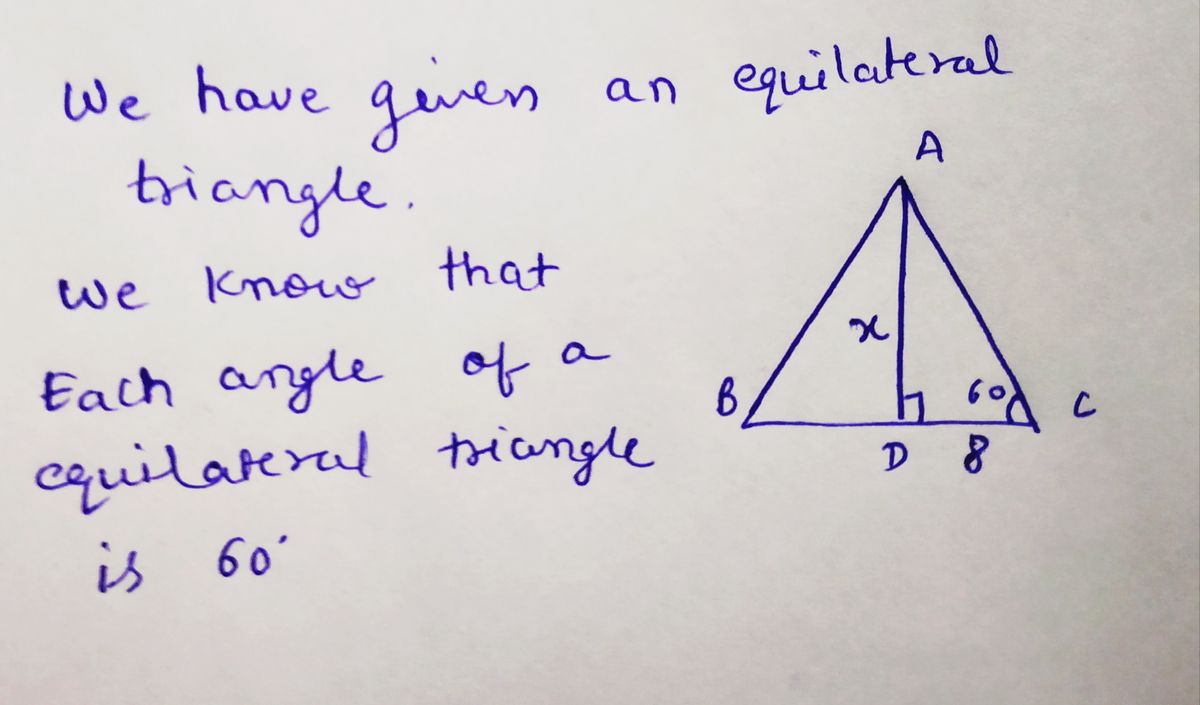 We have given an equilateral
triangle.
A
we know that
x
Each angle of a
B
60
C
equilateral triangle
D 8
is 60°